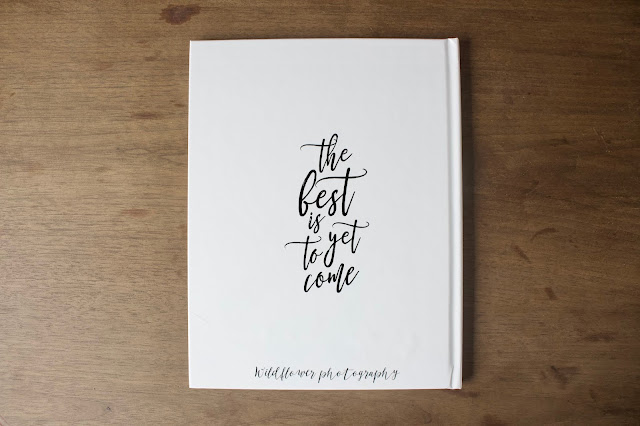 the
best
is
yet
to
come
Wildflower photography